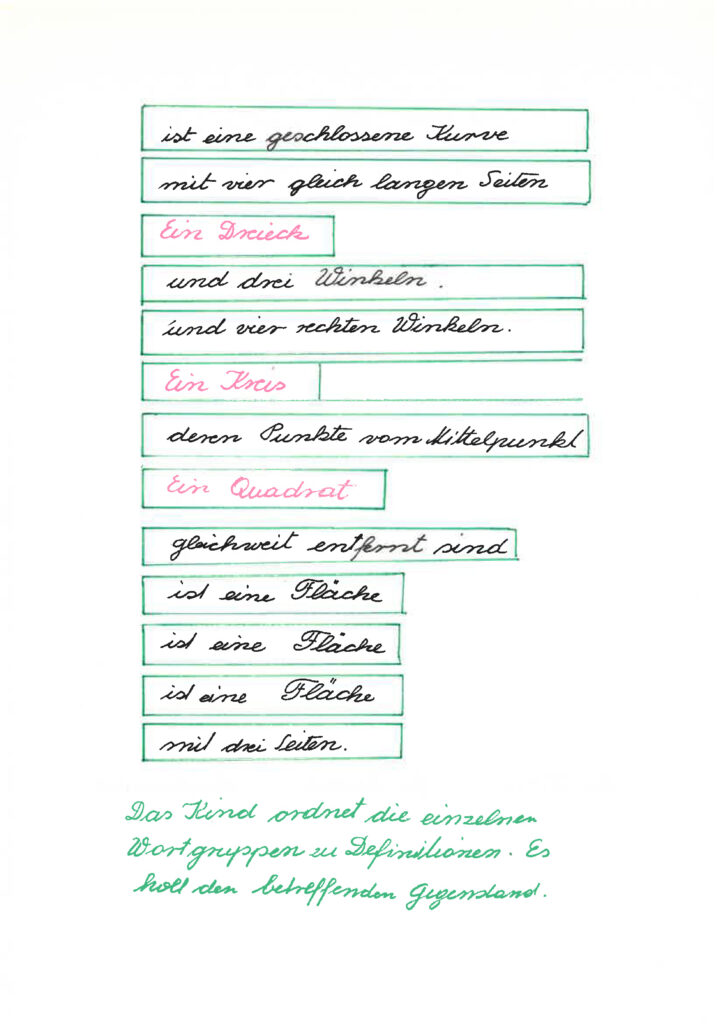 ist eine geschlossene Kurve
mit vier gleich langen Seiten
Ein Dreieck
und drei Winkeln.
und vier rechten Winkeln.
Ein Kreis
deren Punkte vom Mittelpunkt
Ein Quadrat
gleichweit entfernt sind
ist eine Fläche
ist eine Fläche
ist eine Fläche
mit drei Seiten.
Das Kind ordnet die einzelnen
Wortgruppen zu Definitionen. Es
holt den betreffenden Gegenstand.